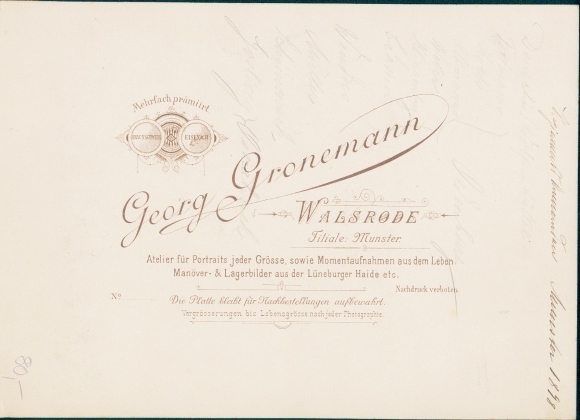 Mehrfach prämiirt
EISENACH
Georg Gronemann
WALSRODE
Filiale: Munster.
Atelier für Portraits jeder Grösse, sowie Momentaufnahmen aus dem Leben.
Manöver- & Lagerbilder aus der Lüneburger Haide etc.
Nachdruck verboten.
No
Die Platte bleibt für Nachbestellungen aufbewahrt.
Vergrösserungen bis Lebensgrösse nach jeder Photographie.
Munster 1898